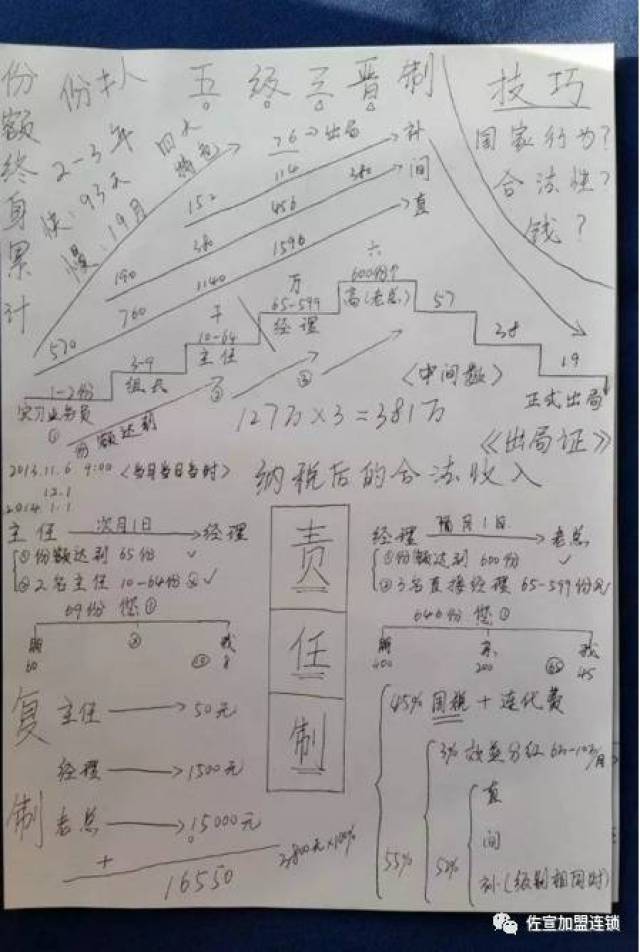 份额终身累计
五级三晋制
技巧
国家行为?
合法性?
钱?
2-3年
快:93天
慢:19月
76 出局
补
114
380
间
152
456
直
380
1596
190
1140
760
570
六
600份个
高(老总)
57
万
65-599
经理
38
千
10-64
主任
19
3-9
组长
1-2份
实习业务员
①
份额达到
②
③
《中间数》
正式出局
127万×3=381万
《出局证》
2013.11.6 9:00
12.1
2014.1.1
纳税后的合法收入
主任 次月1日 经理
①份额达到 65份 ✓
②2名主任 10-64份 ✓
69份 您①
60
8
责任制
经理 隔月1日 老总
①份额达到 600份 ✓
②3名直接经理 65-599份
646份 您①
400
200
65
45
复制
主任 50元
经理 1500元
老总 15000元
+
16550
3800元×100%
45% 国税+连代费
55%
3% 效益分红
52%
直
间
补(级别相同时)
佐宣加盟连锁